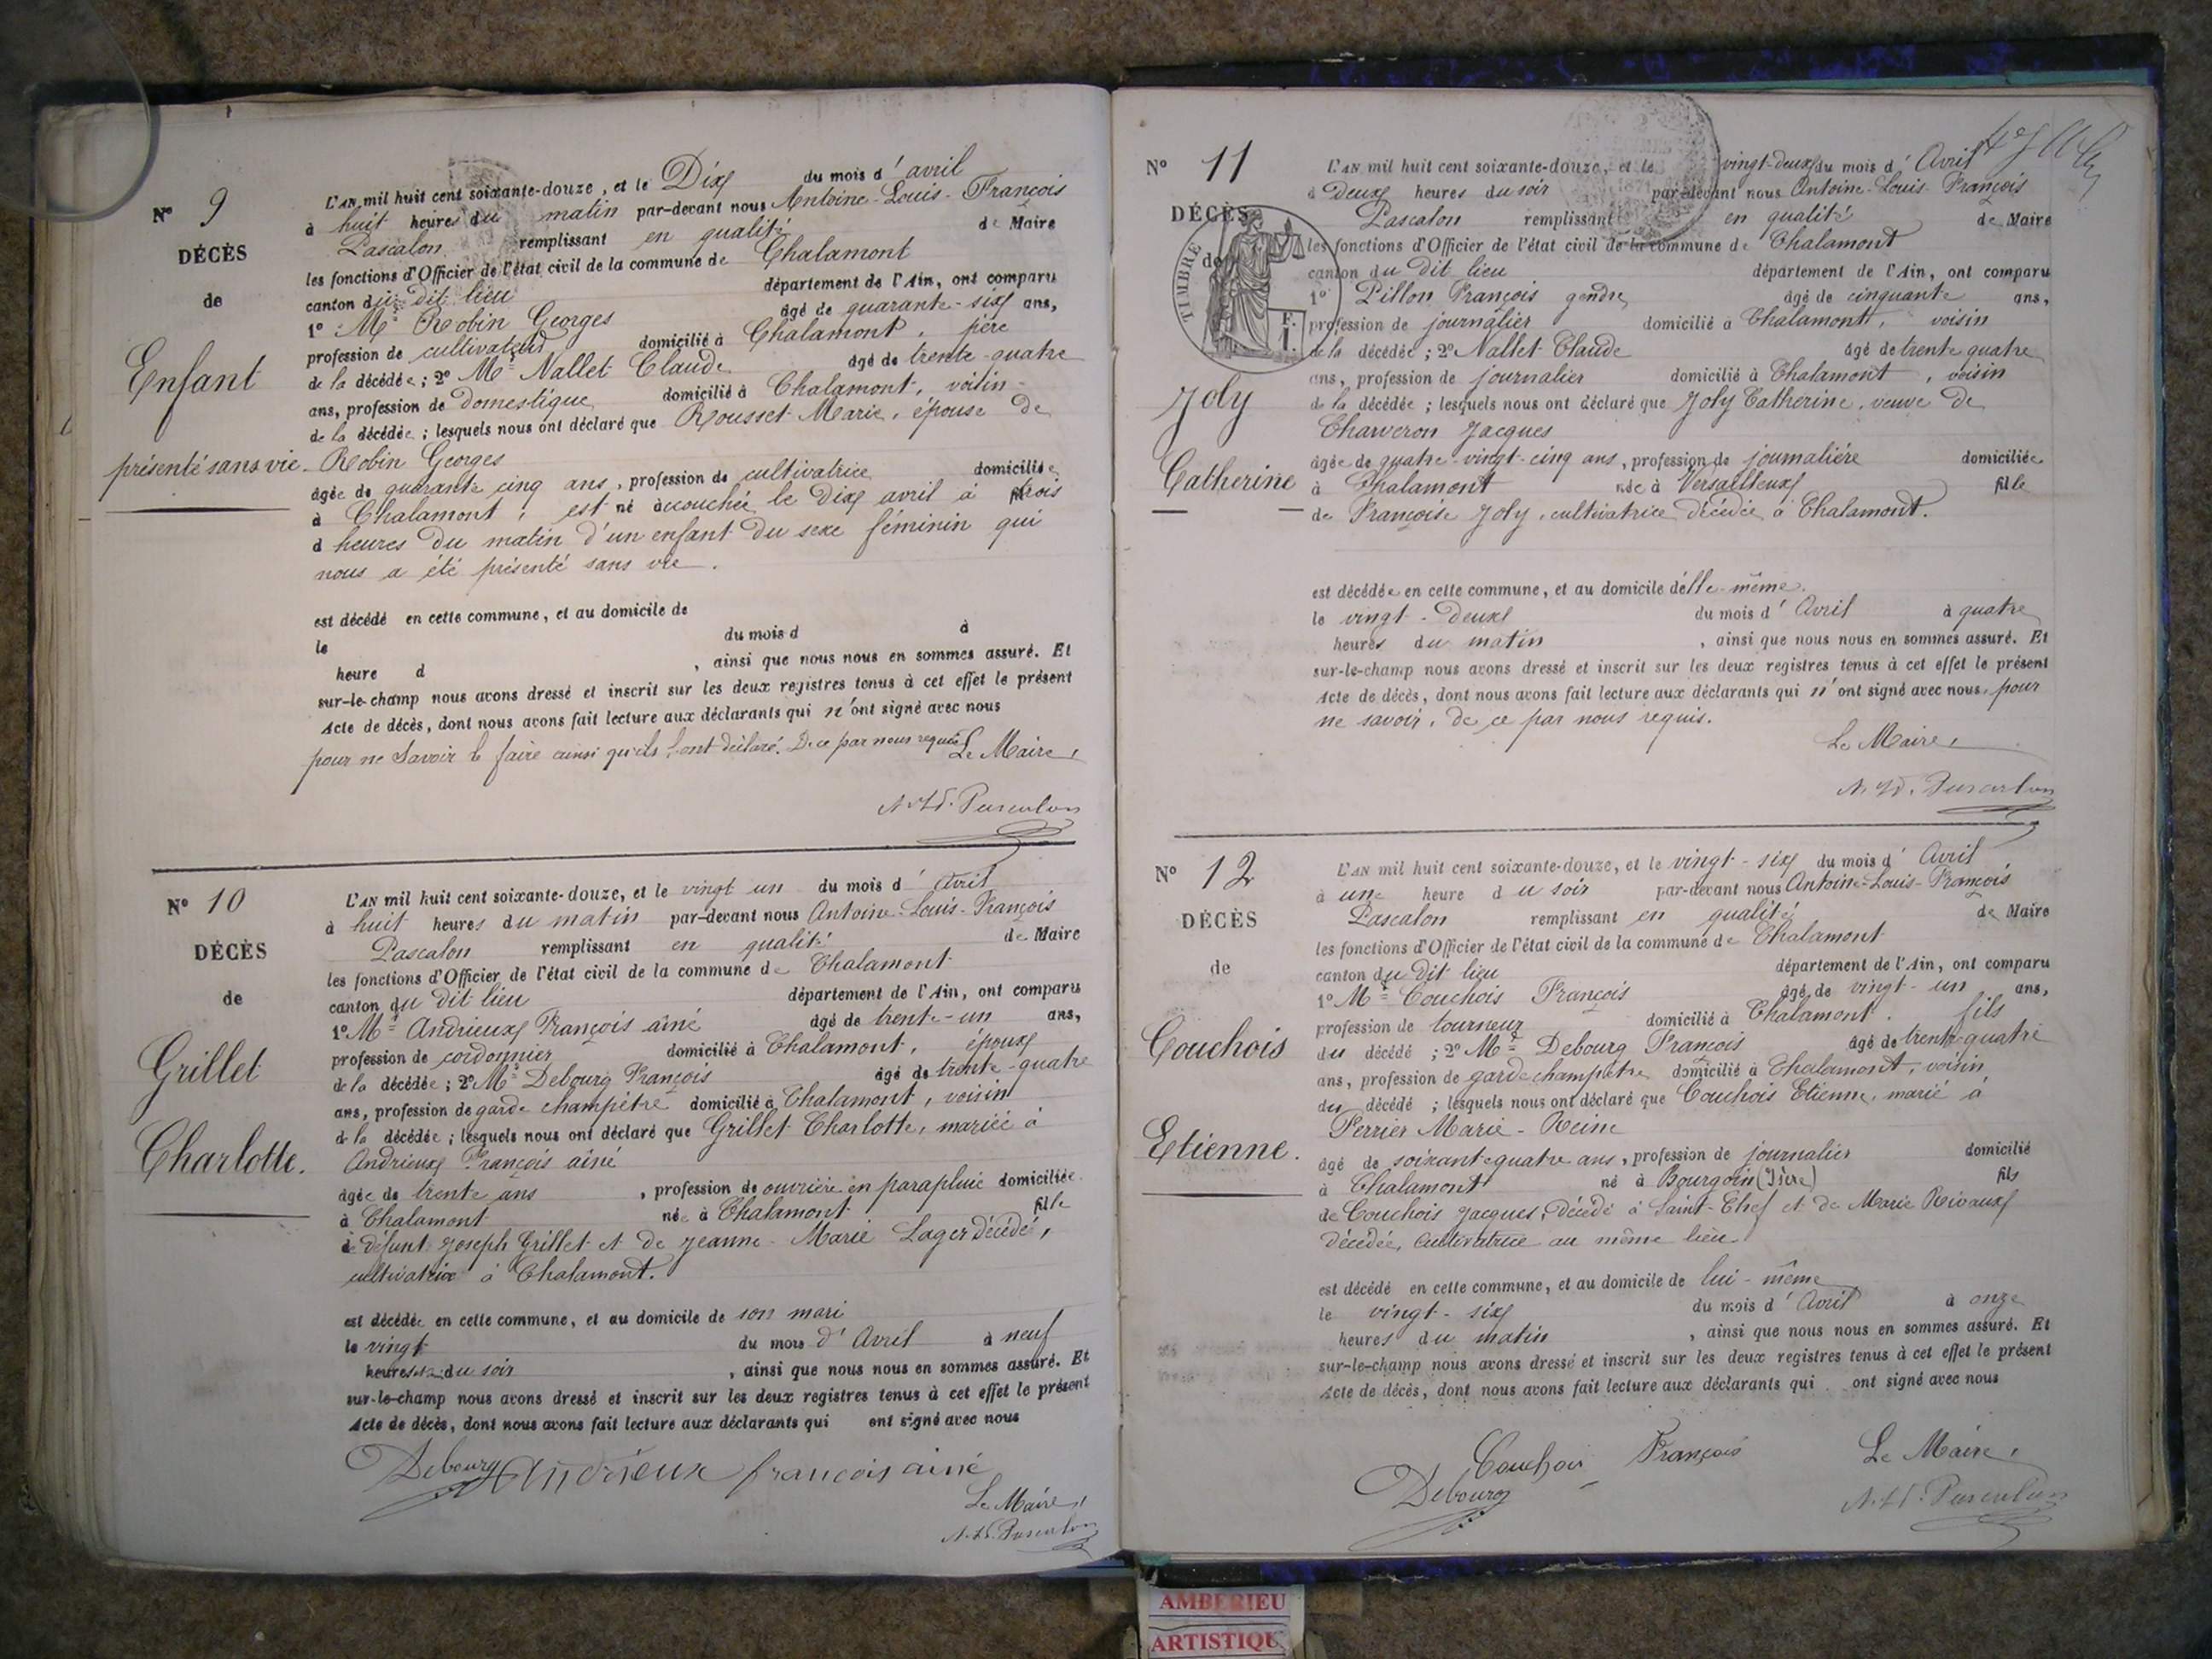 N° 9
DÉCÈS
de
Enfant
présenté sans vie
L'AN mil huit cent soixante-douze, et le Dix du mois d'avril
à huit heures du matin par-devant nous Antoine-Louis-François
Pascalon remplissant en qualité de Maire
les fonctions d'Officier de l'état civil de la commune de Chalamont
canton du dit lieu département de l'Ain, ont comparu
1° Mr Robin Georges âgé de quarante-six ans,
profession de cultivateur domicilié à Chalamont, père
de la décédée; 2° Mr Nallet Claude âgé de trente-quatre
ans, profession de domestique domicilié à Chalamont, voisin
de la décédée; lesquels nous ont déclaré que Rousset Marie, épouse de
Robin Georges
âgée de quarante cinq ans, profession de cultivatrice domiciliée
à Chalamont, est né accouchée le Dix avril à trois
d heures du matin d'un enfant du sexe féminin qui
nous a été présenté sans vie.
est décédé en cette commune, et au domicile de
le du mois d à
heure d , ainsi que nous nous en sommes assuré. Et
sur-le-champ nous avons dressé et inscrit sur les deux registres tenus à cet effet le présent
Acte de décès, dont nous avons fait lecture aux déclarants qui n'ont signé avec nous
pour ne savoir le faire ainsi qu'ils l'ont déclaré. De ce par nous requis Le Maire,
Pascalon
N° 10
DÉCÈS
de
Grillet
Charlotte.
L'AN mil huit cent soixante-douze, et le vingt un du mois d'Avril
à huit heures du matin par-devant nous Antoine-Louis-François
Pascalon remplissant en qualité de Maire
les fonctions d'Officier de l'état civil de la commune de Chalamont
canton du dit lieu département de l'Ain, ont comparu
1° Mr Andrieux François aîné âgé de trente-un ans,
profession de cordonnier domicilié à Chalamont, époux
de la décédée; 2° Mr Debourg François âgé de trente-quatre
ans, profession de garde champêtre domicilié à Chalamont, voisin
de la décédée; lesquels nous ont déclaré que Grillet Charlotte, mariée à
Andrieux François aîné
âgée de trente ans, profession de ouvrière en parapluie domiciliée
à Chalamont née à Chalamont fille
de défunt Joseph Grillet et de Jeanne-Marie Lager décédé,
cultivatrice à Chalamont.
est décédée en cette commune, et au domicile de son mari
le vingt du mois d'Avril à neuf
heures du soir , ainsi que nous nous en sommes assuré. Et
sur-le-champ nous avons dressé et inscrit sur les deux registres tenus à cet effet le présent
Acte de décès, dont nous avons fait lecture aux déclarants qui ont signé avec nous
Debourg Andrieux françois ainé
Le Maire,
Pascalon
N° 11
DÉCÈS
de
TIMBRE
Joly
Catherine
L'AN mil huit cent soixante-douze, et le vingt-deux du mois d'Avril
à Deux heures du soir par-devant nous Antoine-Louis-François
Pascalon remplissant en qualité de Maire
les fonctions d'Officier de l'état civil de la commune de Chalamont
canton du dit lieu département de l'Ain, ont comparu
1° Pillon François gendre âgé de cinquante ans,
profession de journalier domicilié à Chalamont, voisin
de la décédée; 2° Nallet Claude âgé de trente quatre
ans, profession de journalier domicilié à Chalamont, voisin
de la décédée; lesquels nous ont déclaré que Joly Catherine, veuve de
Charveron Jacques
âgée de quatre-vingt-cinq ans, profession de journalière domiciliée
à Chalamont née à Versailleux fille
de Françoise Joly, cultivatrice décédée à Chalamont.
est décédée en cette commune, et au domicile d'elle-même.
le vingt-deux du mois d'Avril à quatre
heures du matin , ainsi que nous nous en sommes assuré. Et
sur-le-champ nous avons dressé et inscrit sur les deux registres tenus à cet effet le présent
Acte de décès, dont nous avons fait lecture aux déclarants qui n'ont signé avec nous, pour
ne savoir, de ce par nous requis.
Le Maire,
Pascalon
N° 12
DÉCÈS
de
Couchois
Etienne.
L'AN mil huit cent soixante-douze, et le vingt-six du mois d'Avril
à une heure du soir par-devant nous Antoine-Louis-François
Pascalon remplissant en qualité de Maire
les fonctions d'Officier de l'état civil de la commune de Chalamont
canton du dit lieu département de l'Ain, ont comparu
1° Mr Couchois François âgé de vingt-un ans,
profession de tourneur domicilié à Chalamont. fils
du décédé; 2° Mr Debourg François âgé de trente-quatre
ans, profession de garde champêtre domicilié à Chalamont, voisin
du décédé; lesquels nous ont déclaré que Couchois Etienne, marié à
Perrier Marie-Reine
âgé de soixante quatre ans, profession de journalier domicilié
à Chalamont né à Bourgoin (Isère) fils
de Couchois Jacques, décédé à Saint-Chef et de Marie Rivaux
décédée, cultivatrice au même lieu.
est décédé en cette commune, et au domicile de lui-même
le vingt-six du mois d'Avril à onze
heures du matin , ainsi que nous nous en sommes assuré. Et
sur-le-champ nous avons dressé et inscrit sur les deux registres tenus à cet effet le présent
Acte de décès, dont nous avons fait lecture aux déclarants qui ont signé avec nous
Couchois François Le Maire,
Debourg Pascalon
AMBERIEU
ARTISTIQU